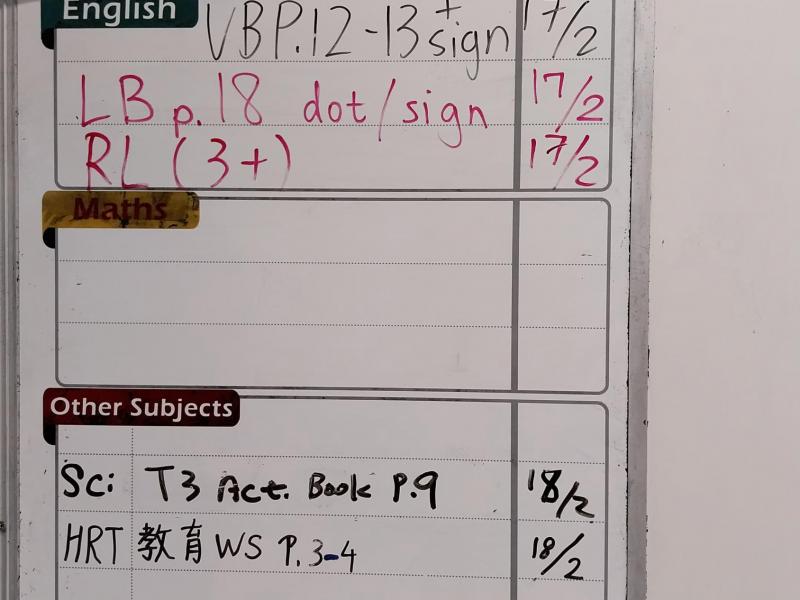 English
VB P.12-13 + sign 17/2
LB p.18 dot/sign 17/2
RL (3+) 17/2
Maths
Other Subjects
Sci T3 Act. Book P.9 18/2
HRT 教育 WS P.3-4 18/2